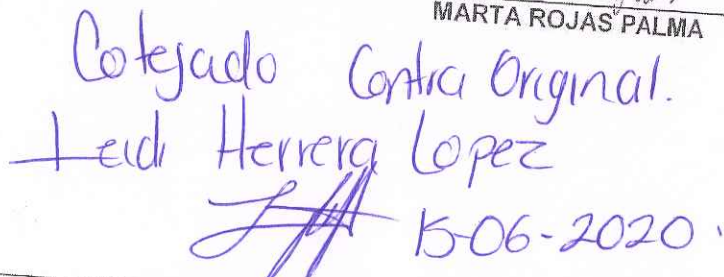 MARTA ROJAS PALMA
Cotejado Contra Original.
Leidi Herrera Lopez
15-06-2020.